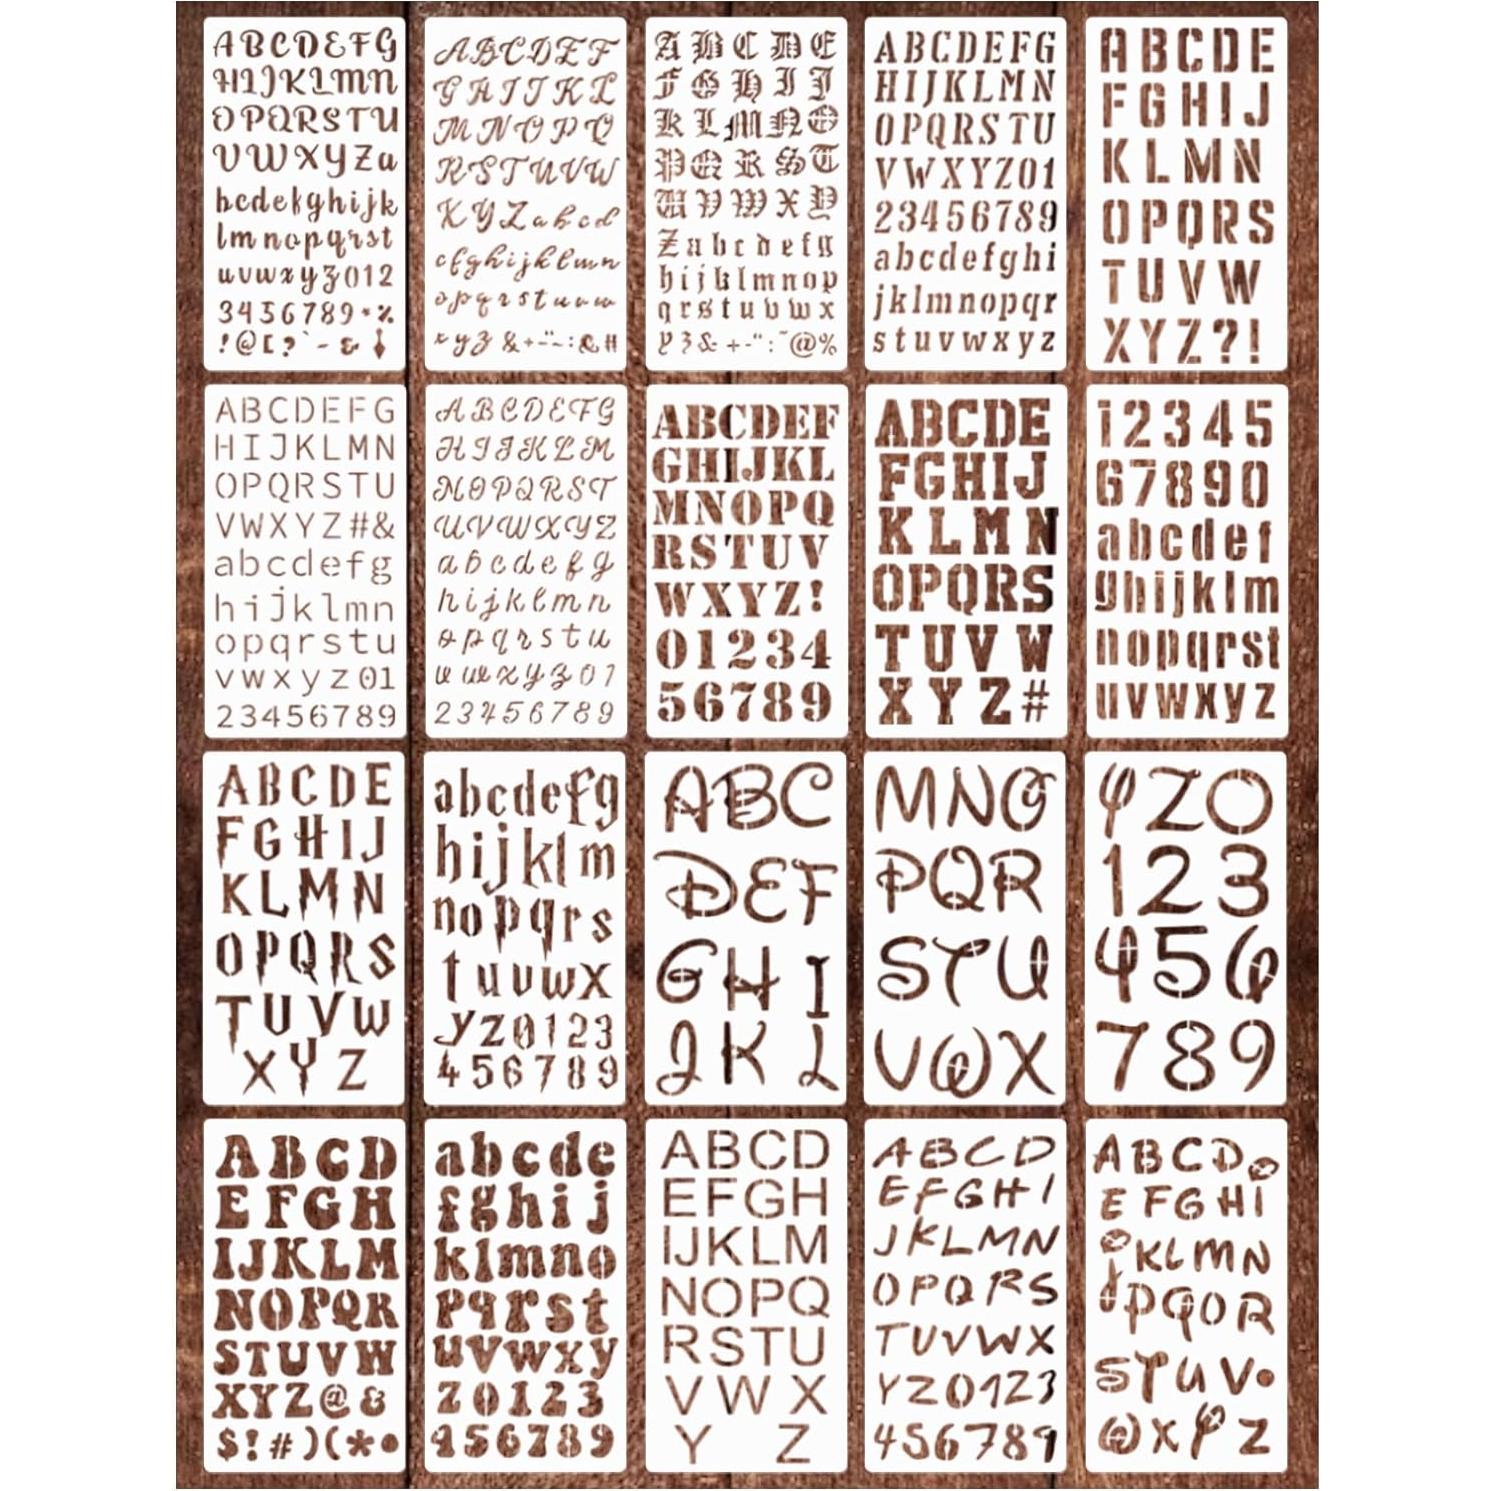 ABCDEFG
HIJKLMN
OPQRSTU
VWXYZa
bcdefghijk
lmnopqrst
uvwxyz012
3456789
ABCDEF
GHIJKL
MNOPQ
RSTUVW
XYZabcd
efghijklmn
opqrstuvw
xyz
ABCDE
FGHIJ
KLMNO
PQRST
UVWXY
Zabcdefg
hijklmnop
qrstuvwx
yz& +-":~@%
ABCDEFG
HIJKLMN
OPQRSTU
VWXYZ01
23456789
abcdefghi
jklmnopqr
stuvwxyz
ABCDE
FGHIJ
KLMN
OPQRS
TUVW
XYZ?!
ABCDEFG
HIJKLMN
OPQRSTU
VWXYZ#&
abcdefg
hijklmn
opqrstu
vwxyz01
23456789
ABCDEFG
HIJKLM
NOPQRST
UVWXYZ
abcdefg
hijklmn
opqrstu
vwxyz01
23456789
ABCDEF
GHIJKL
MNOPQ
RSTUV
WXYZ!
01234
56789
ABCDE
FGHIJ
KLMN
OPQRS
TUVW
XYZ#
12345
67890
abcdef
ghijklm
nopqrst
uvwxyz
ABCDE
FGHIJ
KLMN
OPQRS
TUVW
XYZ
abcdefg
hijklm
nopqrs
tuvwx
yz0123
456789
ABC
DEF
GHI
JKL
MNO
PQR
STU
VWX
YZO
123
456
789
ABCD
EFGH
IJKLM
NOPQR
STUVW
XYZ@&
$!#)(*•
abcde
fghij
klmno
pqrst
uvwxy
z0123
456789
ABCD
EFGH
IJKLM
NOPQ
RSTU
VWX
YZ
ABCD
EFGHI
JKLMN
OPQRS
TUVWX
YZ0123
456789
ABCD
EFGHI
KLMN
JPQOR
STUV
WXYZ